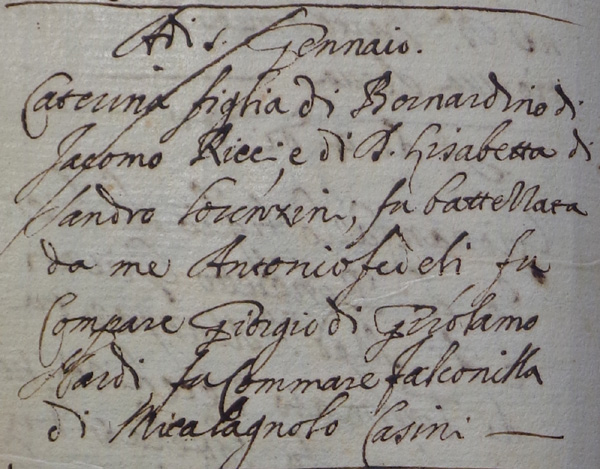 Adi 5. Gennaio.
Caterina figlia di Bernardino di
Jacomo Ricci, e di D. Lisabetta di
Sandro Lorenzini, fu battezzata
da me Antonio fedeli fu
Compare Giorgio di Girolamo
Nardi fu Commare falconilla
di Micalagnolo Casini